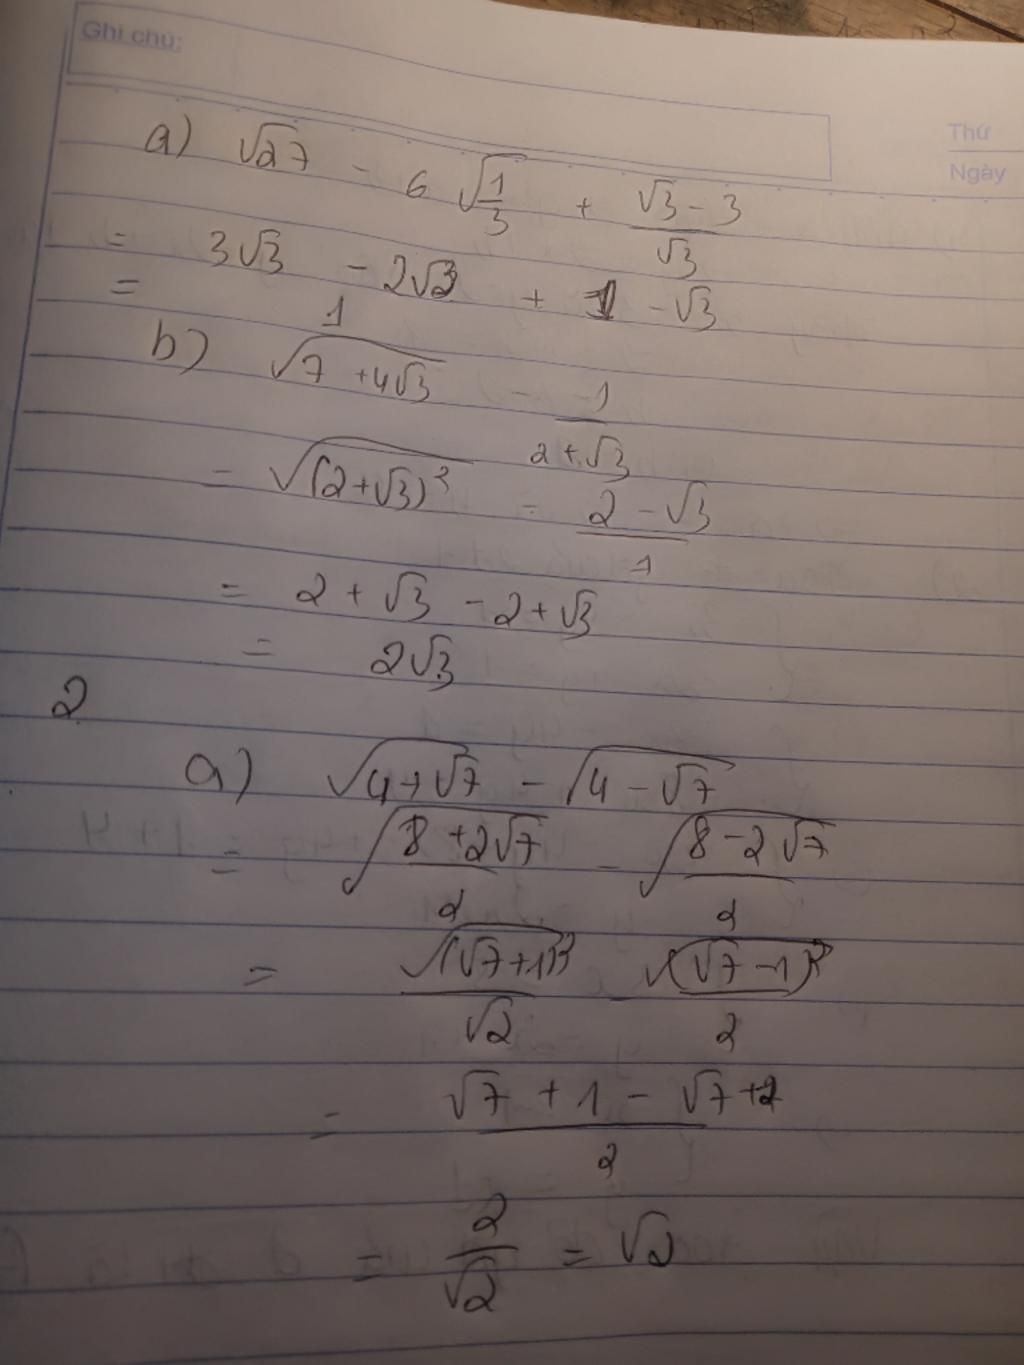 Ghi chú:
Thứ
Ngày
a) √27 - 6√(1/3) + (√3 - 3)/√3
= 3√3 - 2√3 + 1 - √3
= 1
b) √(7 + 4√3) - 1/(2 + √3)
= √((2 + √3)²) - (2 - √3)/1
= 2 + √3 - 2 + √3
= 2√3
2
a) √(4 + √7) - √(4 - √7)
= √((8 + 2√7)/2) - √((8 - 2√7)/2)
= √((√7 + 1)²)/√2 - √((√7 - 1)²)/2
= (√7 + 1 - √7 + 1)/2
= 2/√2 = √2